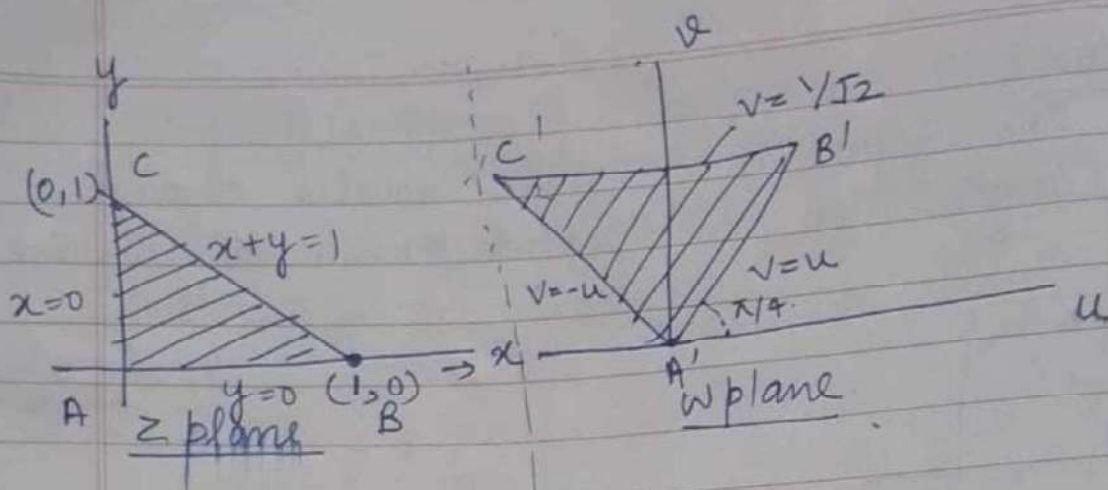 y
C
(0,1)
x+y=1
x=0
y=0 (1,0)
A
B
x
z plane
v
v=1/√2
C'
B'
v=-u
v=u
π/4.
u
A'
W plane